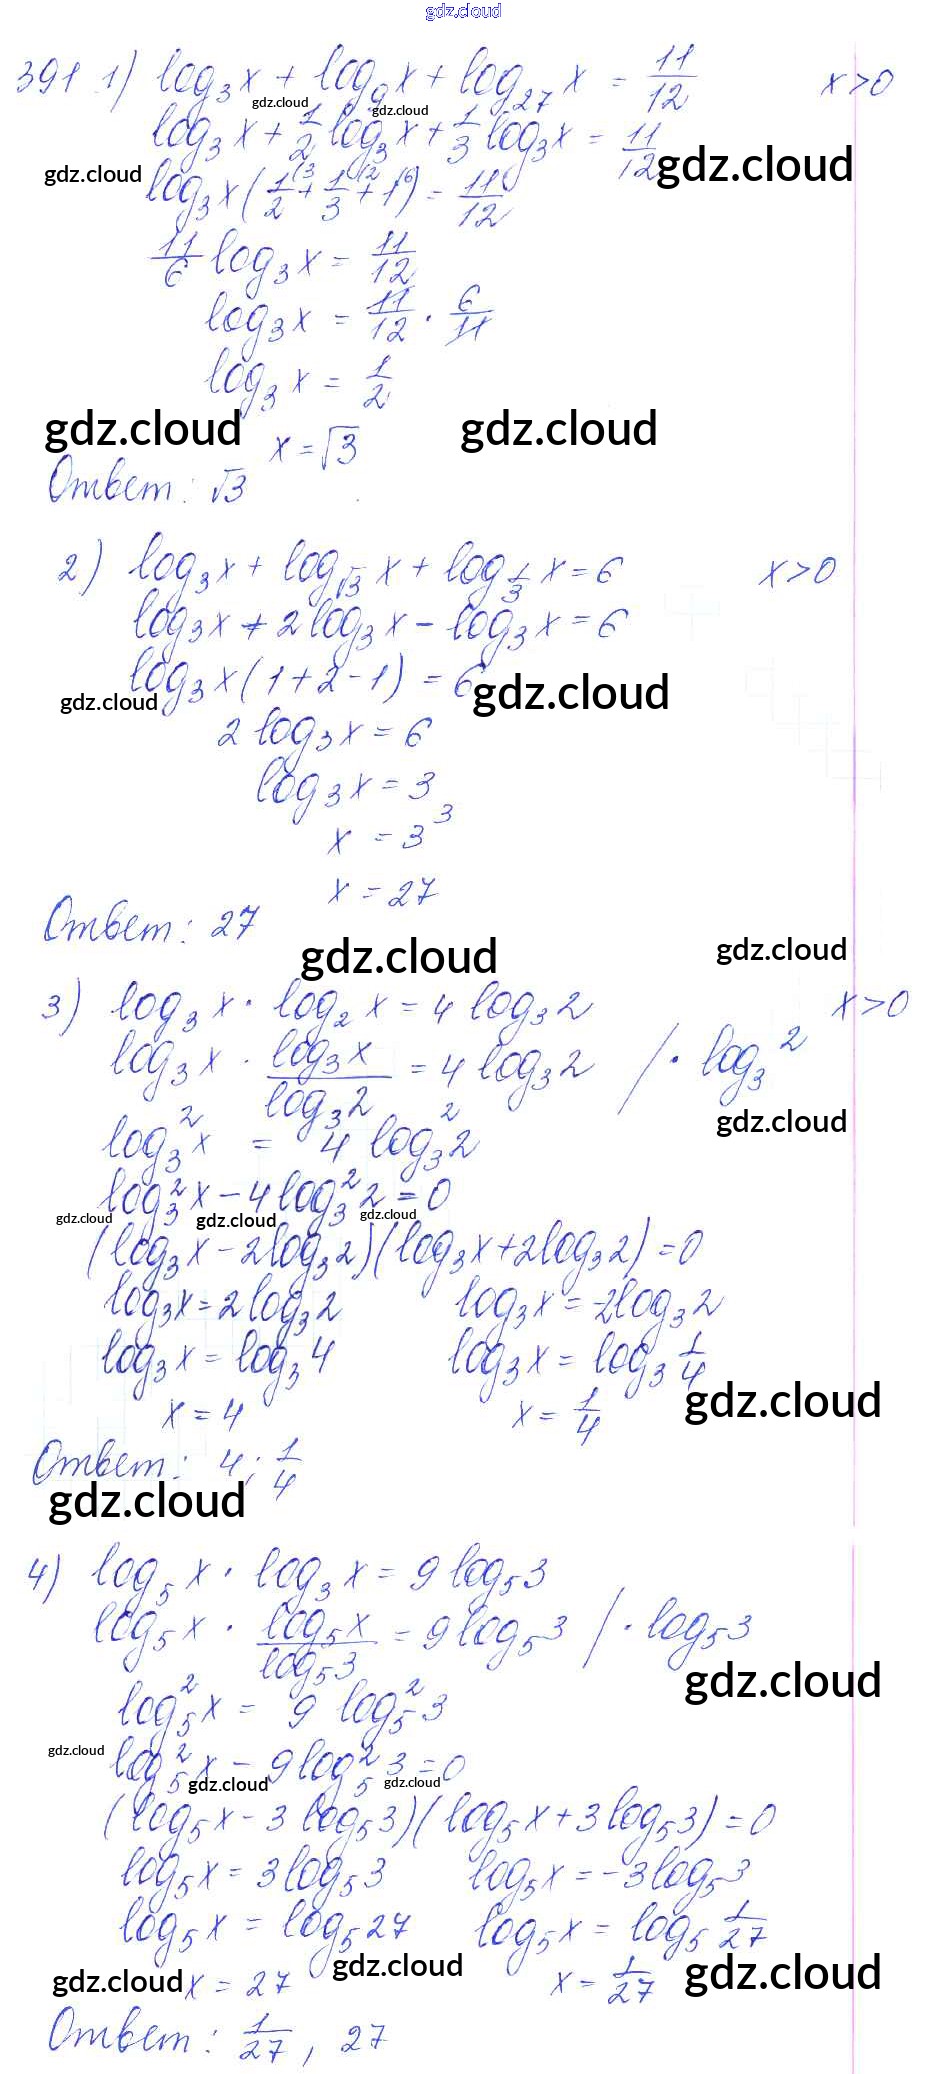 gdz.cloud
391 1) log₃x + log₉x + log₂₇x = 11/12 x>0
gdz.cloud gdz.cloud
log₃x + 1/2 log₃x + 1/3 log₃x = 11/12
gdz.cloud gdz.cloud
log₃x (1/2⁽³ + 1/3⁽² + 1⁽⁶) = 11/12
11/6 log₃x = 11/12
log₃x = 11/12 · 6/11
log₃x = 1/2
gdz.cloud gdz.cloud
x = √3
Ответ: √3
2) log₃x + log_√3 x + log_1/3 x = 6 x>0
log₃x + 2log₃x - log₃x = 6
log₃x (1+2-1) = 6
gdz.cloud gdz.cloud
2 log₃x = 6
log₃x = 3
x = 3³
x = 27
Ответ: 27
gdz.cloud gdz.cloud
3) log₃x · log₂x = 4 log₃2 x>0
log₃x · log₃x/log₃2 = 4 log₃2 /· log₃2
gdz.cloud
log₃²x = 4 log₃²2
log₃²x - 4log₃²2 = 0
gdz.cloud gdz.cloud gdz.cloud
(log₃x - 2log₃2)(log₃x + 2log₃2) = 0
log₃x = 2log₃2 log₃x = -2log₃2
log₃x = log₃4 log₃x = log₃ 1/4
gdz.cloud
x = 4 x = 1/4
Ответ: 4; 1/4
gdz.cloud
4) log₅x · log₃x = 9 log₅3
log₅x · log₅x/log₅3 = 9log₅3 /· log₅3
gdz.cloud
log₅²x = 9 log₅²3
gdz.cloud
log₅²x - 9log₅²3 = 0
gdz.cloud gdz.cloud
(log₅x - 3 log₅3)(log₅x + 3 log₅3) = 0
log₅x = 3log₅3 log₅x = -3log₅3
log₅x = log₅27 log₅x = log₅ 1/27
gdz.cloud gdz.cloud gdz.cloud
x = 27 x = 1/27
Ответ: 1/27, 27